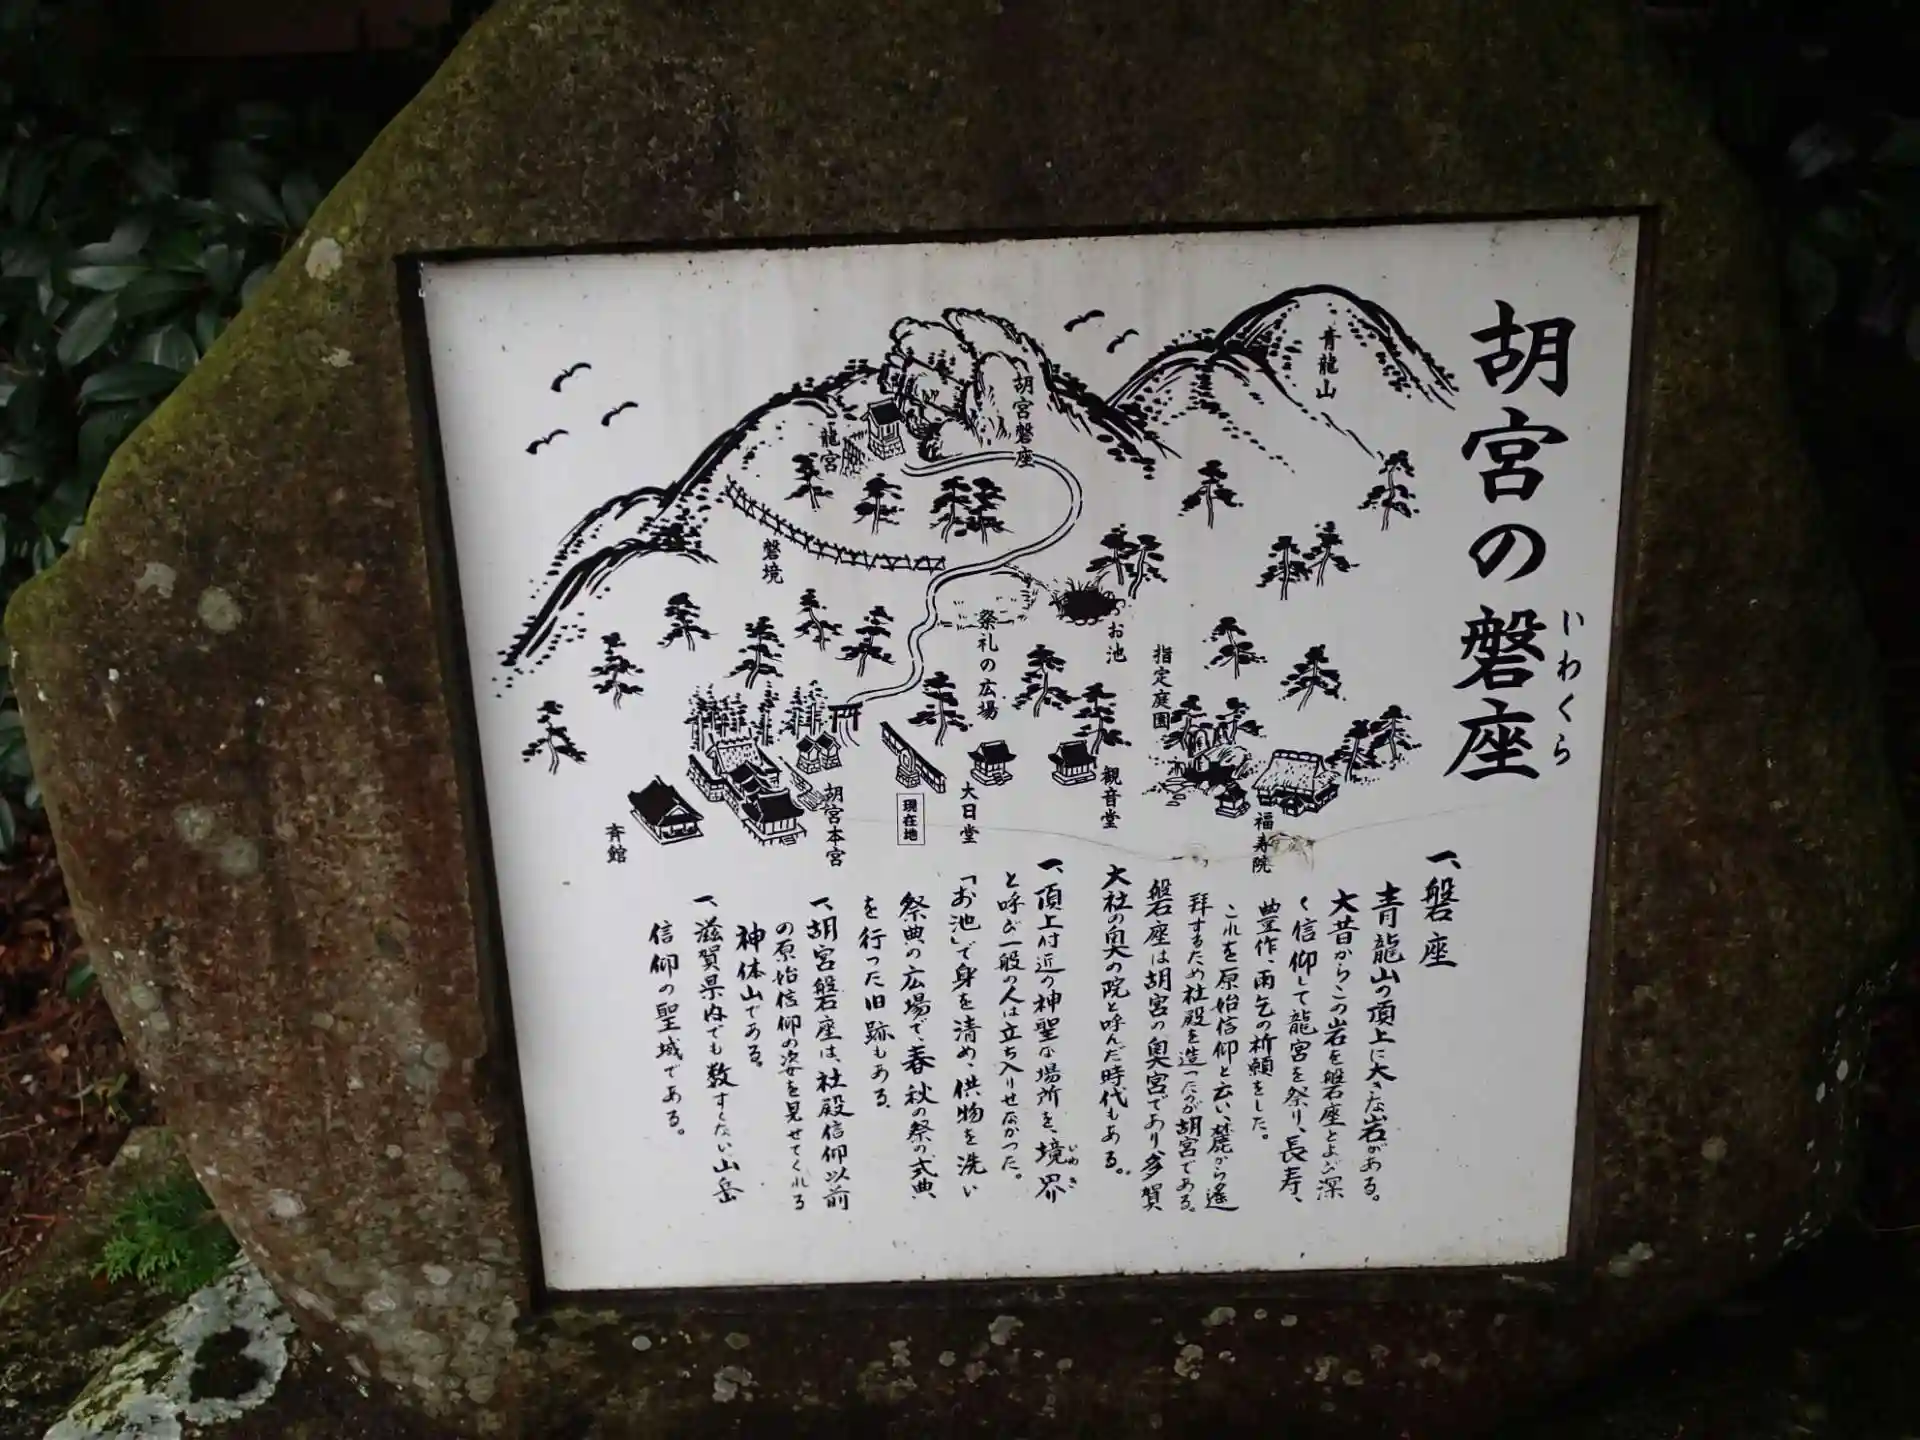 胡宮の磐座
いわくら
青龍山
胡宮磐座
龍宮
磐境
祭礼の広場
お池
指定庭園
福寿院
観音堂
大日堂
現在地
胡宮本宮
斉館
一、磐座
青龍山の頂上に大きな岩がある。
大昔からこの岩を磐座とよび深
く信仰して龍宮を祭り、長寿、
豊作、雨乞の祈願をした。
これを原始信仰と云い、麓から遙
拝するため社殿を造ったのが胡宮である。
磐座は胡宮の奥宮であり多賀
大社の奥の院と呼んだ時代もある。
一、頂上付近の神聖な場所を、境界
いわさか
と呼び一般の人は立ち入りせなかった。
「お池」で身を清め、供物を洗い
祭典の広場で、春秋の祭の式典
を行った旧跡もある。
一、胡宮磐座は、社殿信仰以前
の原始信仰の姿を見せてくれる
神体山である。
一、滋賀県内でも数すくない山岳
信仰の聖域である。